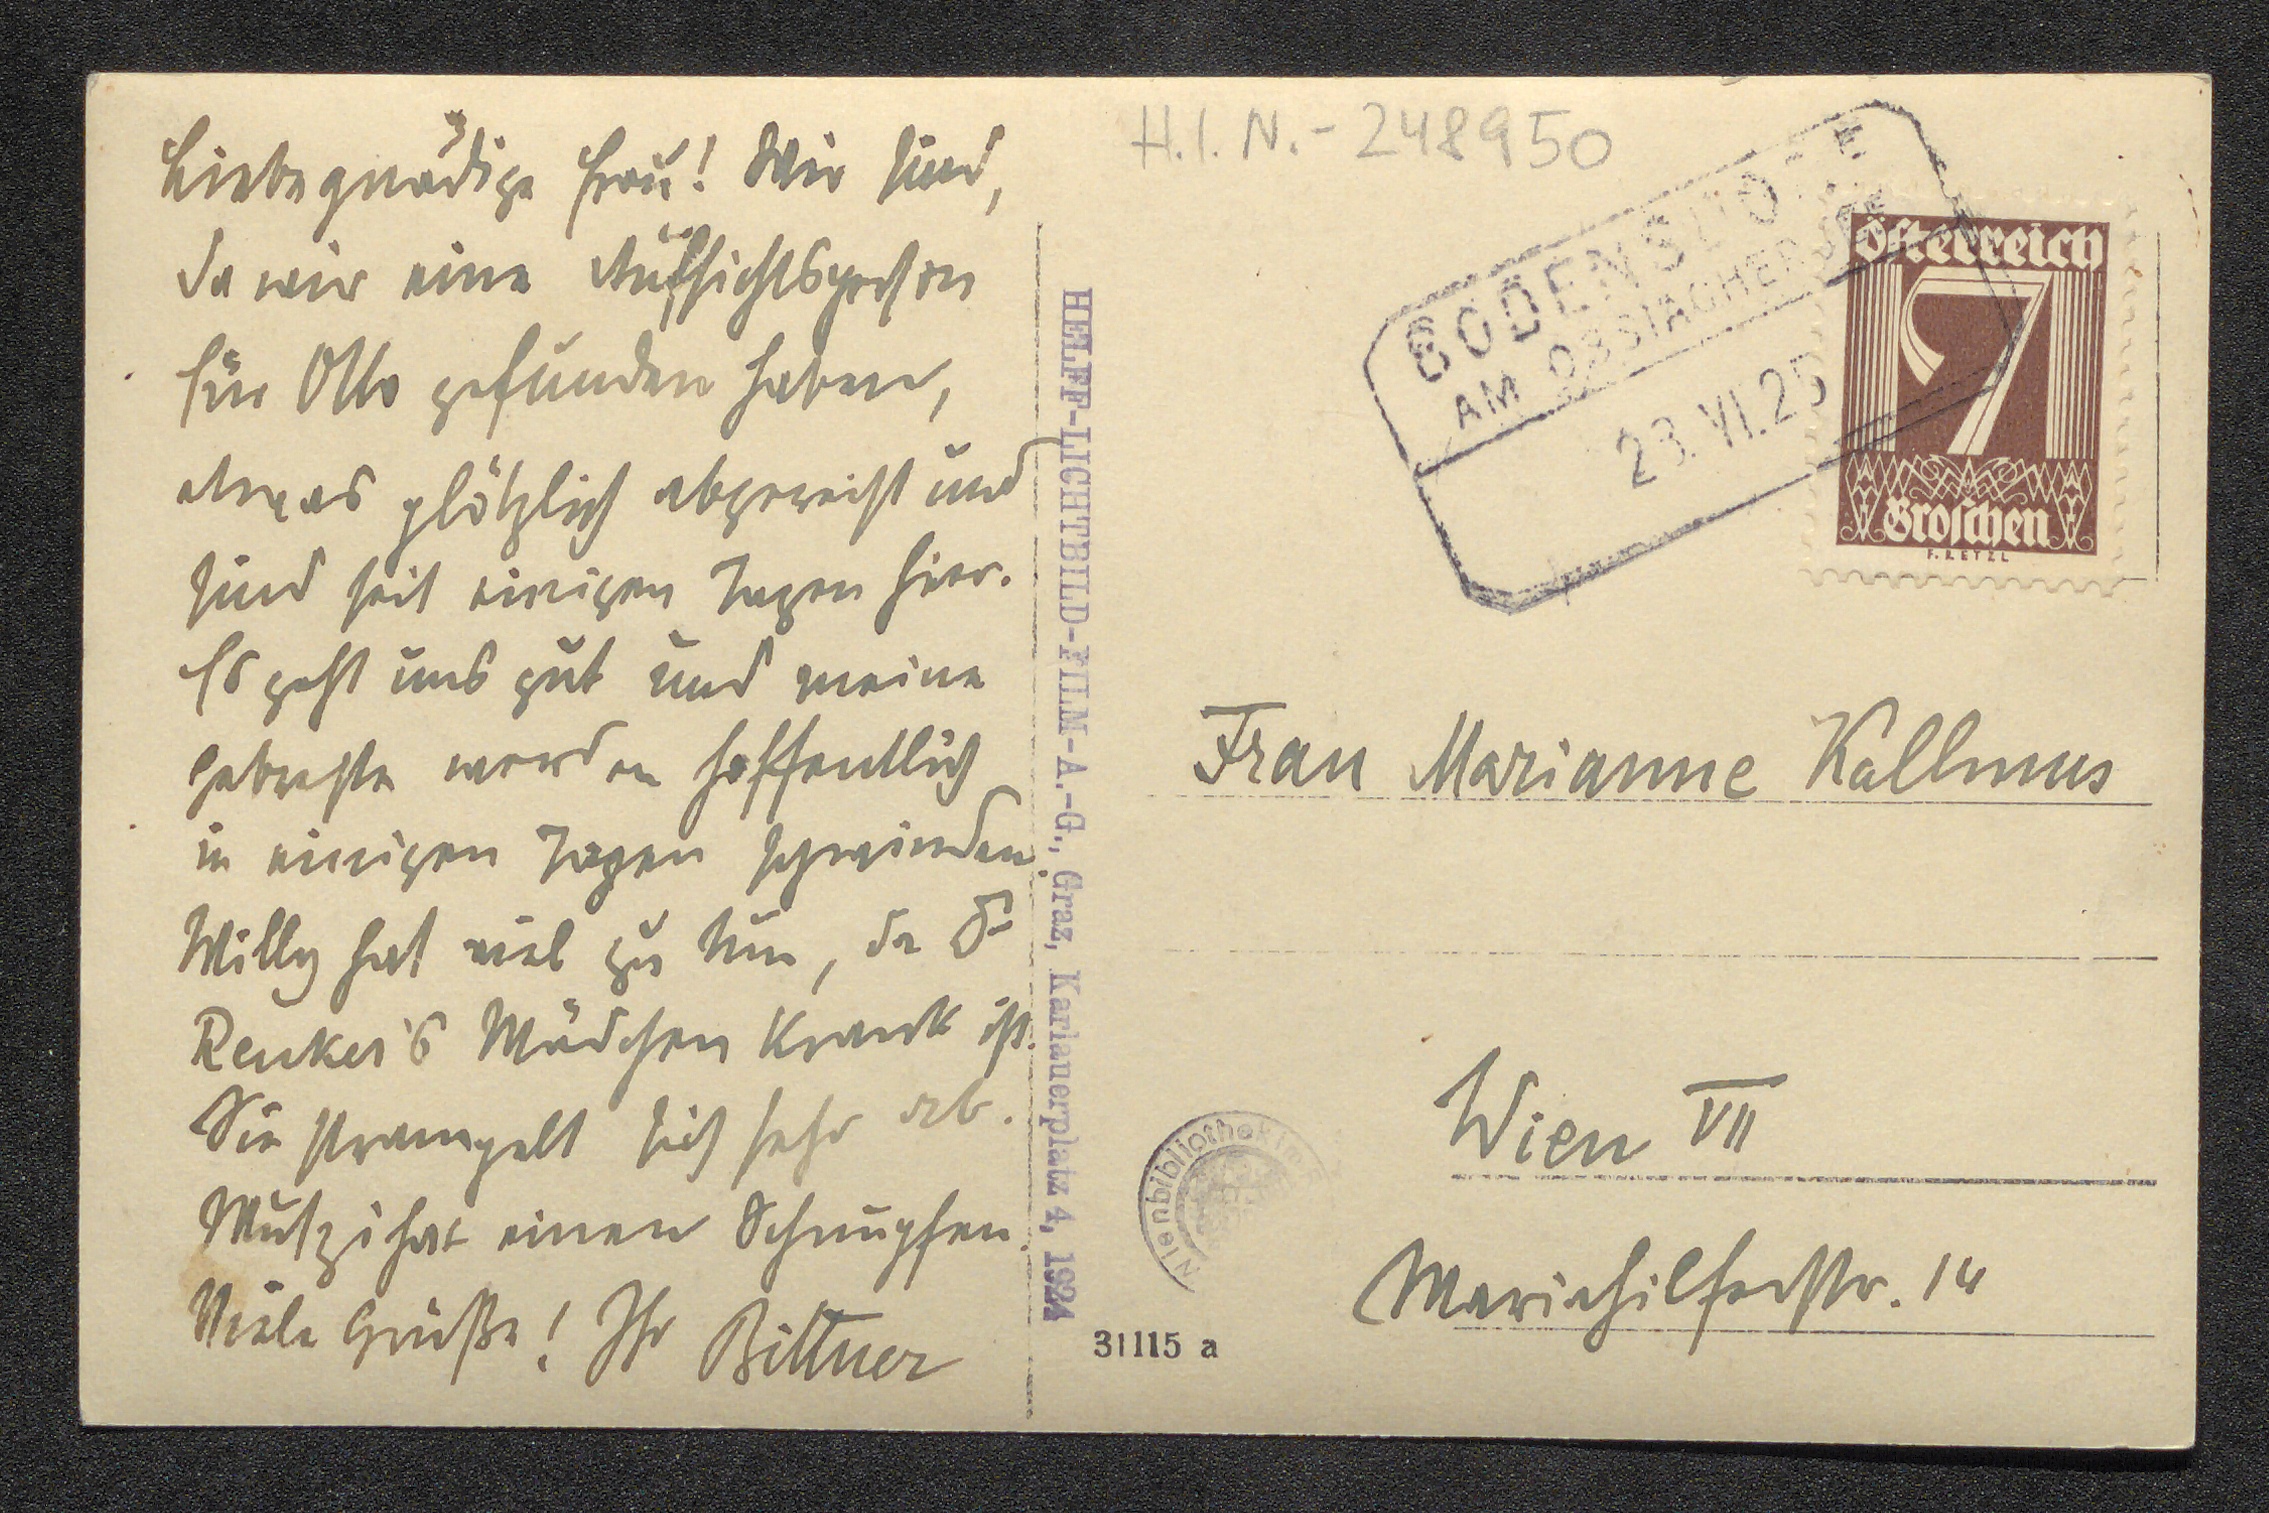 Liebe gnädige Frau! Wir sind,
da wir eine Aufsichtsperson
für Otto gefunden haben,
etwas plötzlich abgereist und
sind seit einigen Tagen hier.
Es geht uns gut und meine
Gebreste werden hoffentlich
in einigen Tagen schwinden.
Willy hat viel zu tun, da
Renker's Mädchen krank ist.
Sie strampelt sich sehr ab.
Mutzi hat einen Schnupfen.
Viele Grüße! Ihr Bittner
HELFF-LICHTBILD-FILM-A.-G., Graz, Karlauerplatz 4, 1924
H.I.N.-248950
AM OSSIACHER SEE
23.VI.25
Österreich
7
Groschen
F. RETZL
Frau Marianne Kallmus
Wien VII
Mariahilferstr. 14
Wienbibliothek im
31115 a